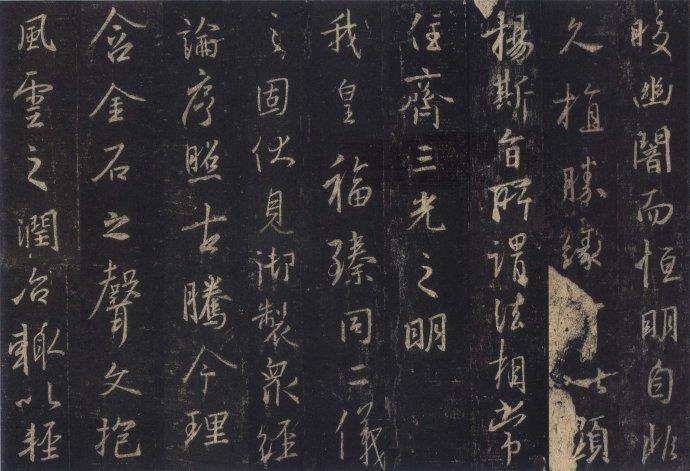 睃幽闇而恒明自非
久植勝緣以顯
揚斯旨所謂法相常
住齊三光之明
我皇福臻同二儀
之固伏見御製眾經
論序照古騰今理
含金石之聲文抱
風雲之潤治輒以輕